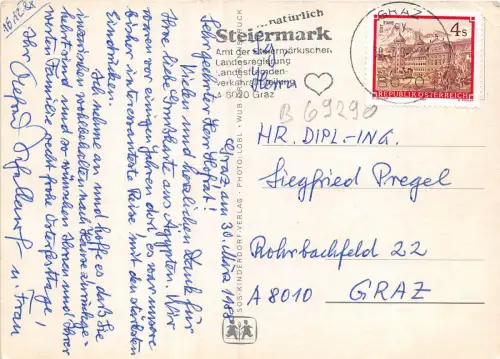 16.12.88
Graz, am 30. März 1988
Sehr geehrter Herr Hofrat!
Vielen und herzlichen Dank für
Ihre liebe Grußkarte aus Ägypten. Wir
waren vor einigen Jahren dort, es war unsere
bisher interessanteste Reise mit den stärksten
Eindrücken.
Ich nehme an und hoffe es, daß Sie
inzwischen wohlbehalten nach Hause zurückge-
kehrt sind und so wünschen Ihnen und Ihrer
werten Familie recht frohe Osterfesttage,
Ihr
u. Frau
natürlich
Steiermark
Amt der Steiermärkischen
Landesregierung
Landesfremden-
verkehrsabteilung
A 8020 Graz
Herrn
GRAZ
4 S
REPUBLIK ÖSTERREICH
B 69290
HR. DIPL.-ING.
Siegfried Pregel
Rohrbachfeld 22
A 8010 GRAZ
SOS-KINDERDORF-VERLAG · PHOTO: LÖBL · WUB-DRUCK